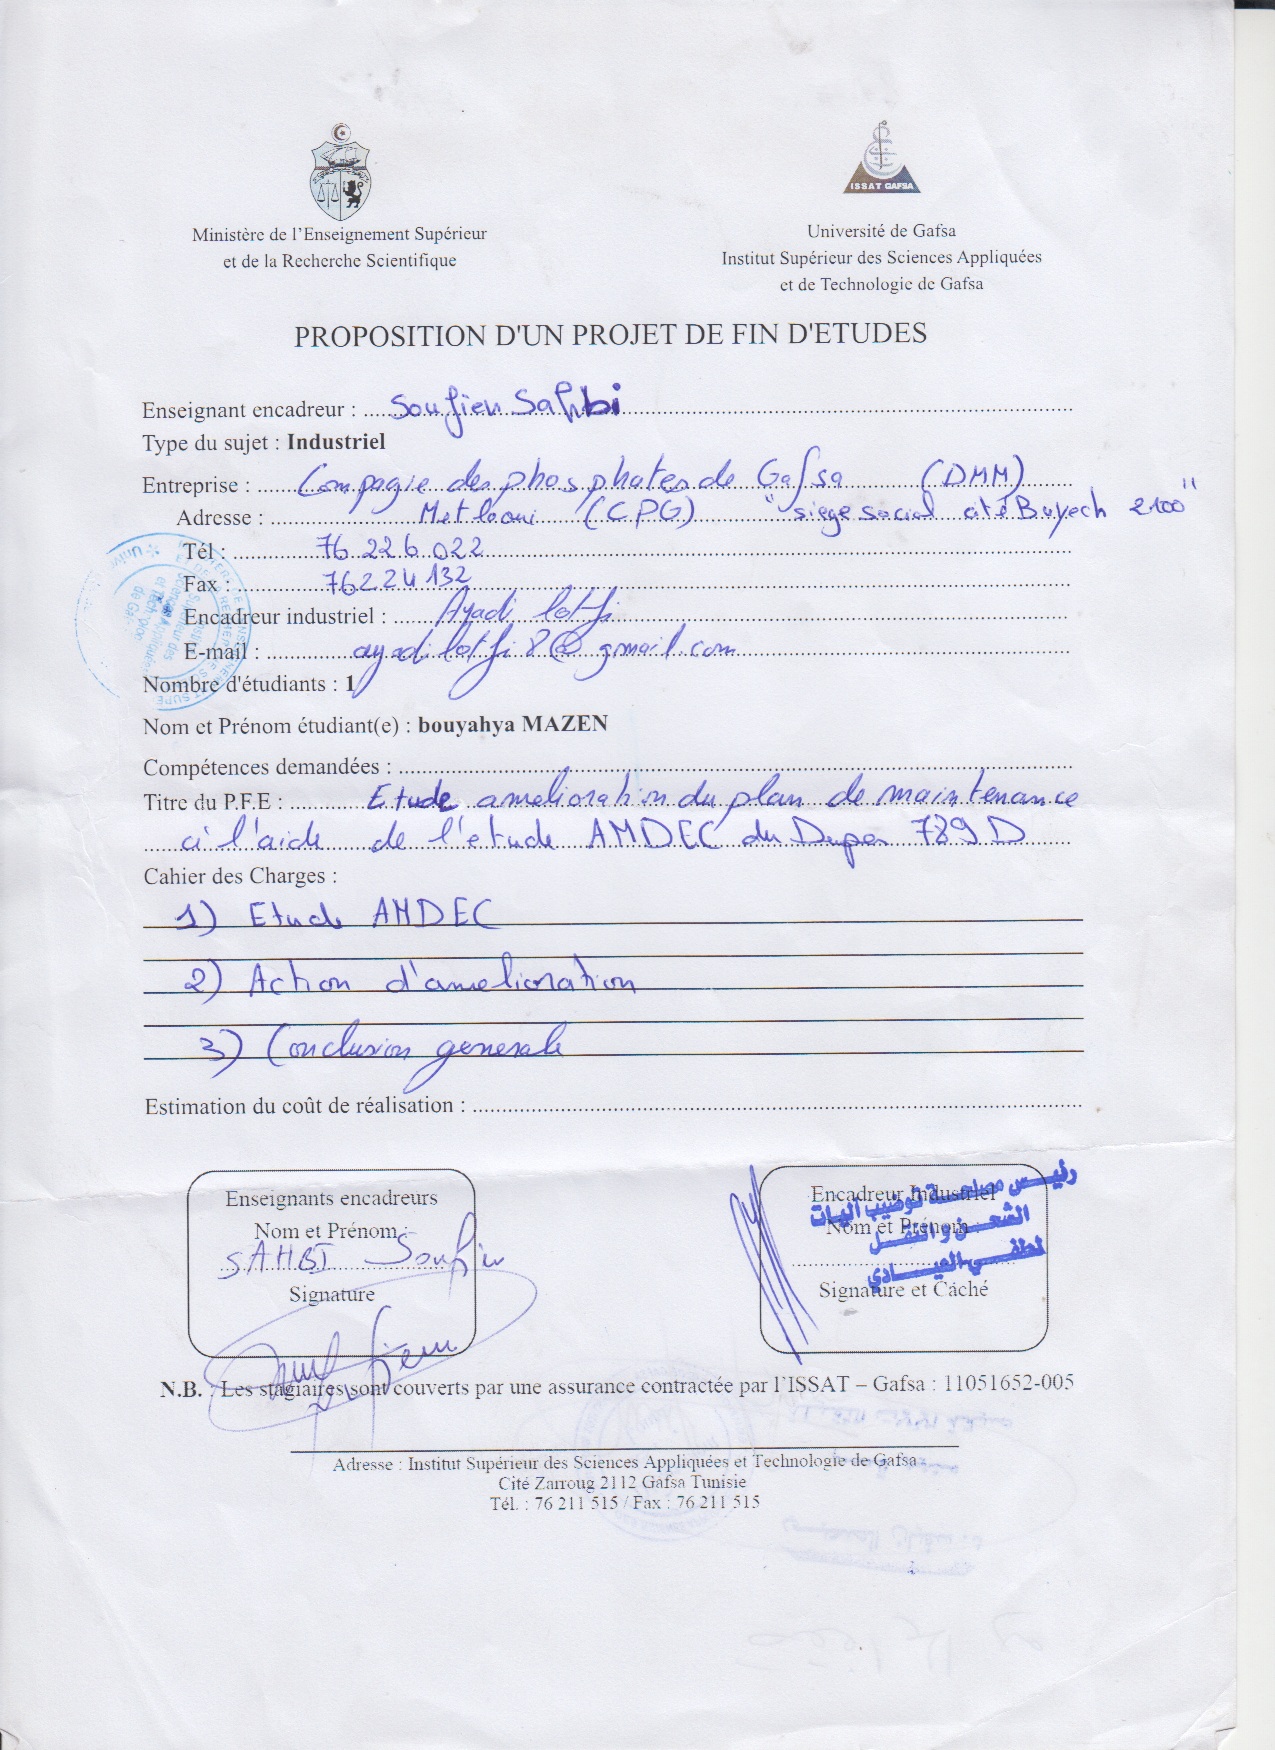 ISSAT GAFSA
Ministère de l'Enseignement Supérieur
et de la Recherche Scientifique
Université de Gafsa
Institut Supérieur des Sciences Appliquées
et de Technologie de Gafsa
PROPOSITION D'UN PROJET DE FIN D'ETUDES
Enseignant encadreur : Soufien Sahbi
Type du sujet : Industriel
Entreprise : Compagie des phosphates de Gafsa (DMM)
Adresse : Metlaoui (CPG) "siege social cité Bayech 2100"
Tél : 76 226 022
Fax : 76224132
Encadreur industriel : Ayadi lotfi
E-mail : ayadilotfi8@gmail.com
Nombre d'étudiants : 1
Nom et Prénom étudiant(e) : bouyahya MAZEN
Compétences demandées :
Titre du P.F.E : Etude amelioration du plan de maintenance
à l'aide de l'etude AMDEC du Dumper 789 D
Cahier des Charges :
1) Etude AMDEC
2) Action d'amelioration
3) Conclusion generale
Estimation du coût de réalisation :
Enseignants encadreurs
Nom et Prénom :
SAHBI Soufien
Signature
Encadreur Industriel
Nom et Prénom
Signature et Caché
رئيس مصلحة توضيب آليات
الشحن و النقل
لطفي العيادي
N.B. : Les stagiaires sont couverts par une assurance contractée par l'ISSAT – Gafsa : 11051652-005
Adresse : Institut Supérieur des Sciences Appliquées et Technologie de Gafsa
Cité Zarroug 2112 Gafsa Tunisie
Tél. : 76 211 515 / Fax : 76 211 515